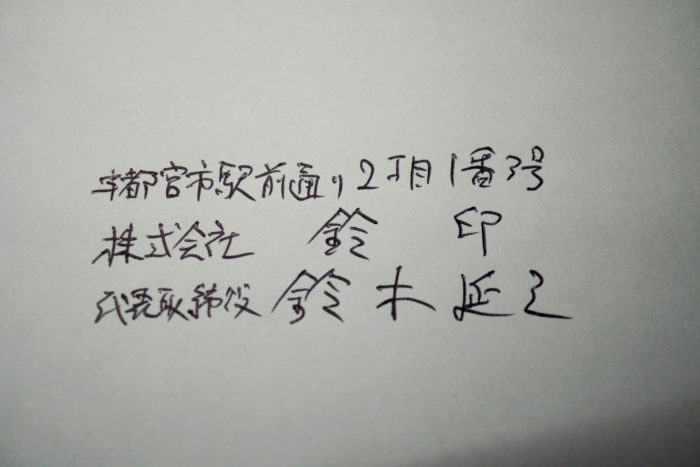 宇都宮市駅前通り2丁目1番3号
株式会社 鈴 印
代表取締役 鈴 木 延 之